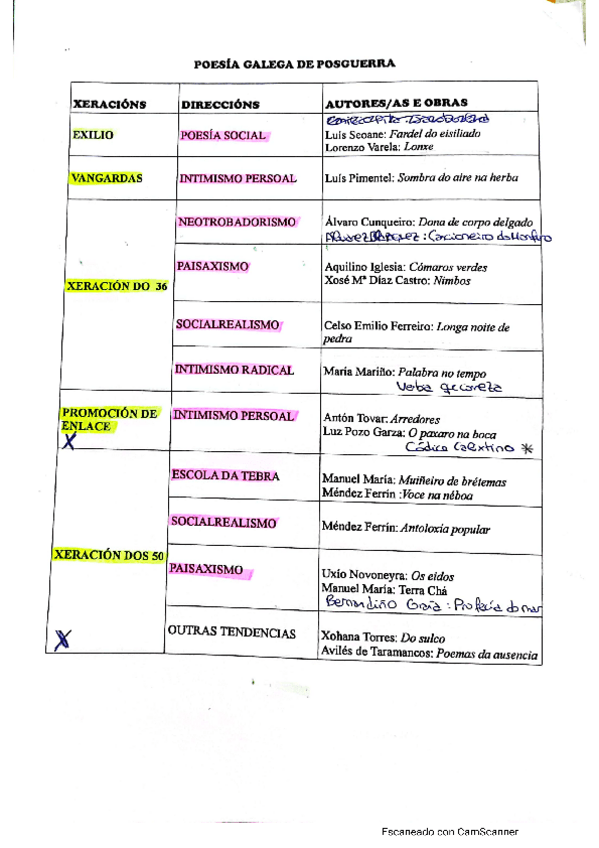 POESÍA GALEGA DE POSGUERRA
XERACIÓNS DIRECCIÓNS AUTORES/AS E OBRAS
EXILIO POESÍA SOCIAL Luís Seoane: Fardel do eisiliado
Lorenzo Varela: Lonxe
VANGARDAS INTIMISMO PERSOAL Luís Pimentel: Sombra do aire na herba
XERACIÓN DO 36
NEOTROBADORISMO Álvaro Cunqueiro: Dona de corpo delgado
PAISAXISMO Aquilino Iglesia: Cómaros verdes
Xosé Mª Díaz Castro: Nimbos
SOCIALREALISMO Celso Emilio Ferreiro: Longa noite de
pedra
INTIMISMO RADICAL María Mariño: Palabra no tempo
Verba que comeza
PROMOCIÓN DE
ENLACE
X
INTIMISMO PERSOAL Antón Tovar: Arredores
Luz Pozo Garza: O paxaro na boca
Códice Calixtino *
XERACIÓN DOS 50
X
ESCOLA DA TEBRA Manuel María: Muiñeiro de brétemas
Méndez Ferrín :Voce na néboa
SOCIALREALISMO Méndez Ferrín: Antoloxía popular
PAISAXISMO Uxío Novoneyra: Os eidos
Manuel María: Terra Chá
Bernardino Graña: Profecía do mar
OUTRAS TENDENCIAS Xohana Torres: Do sulco
Avilés de Taramancos: Poemas da ausencia
Escaneado con CamScanner